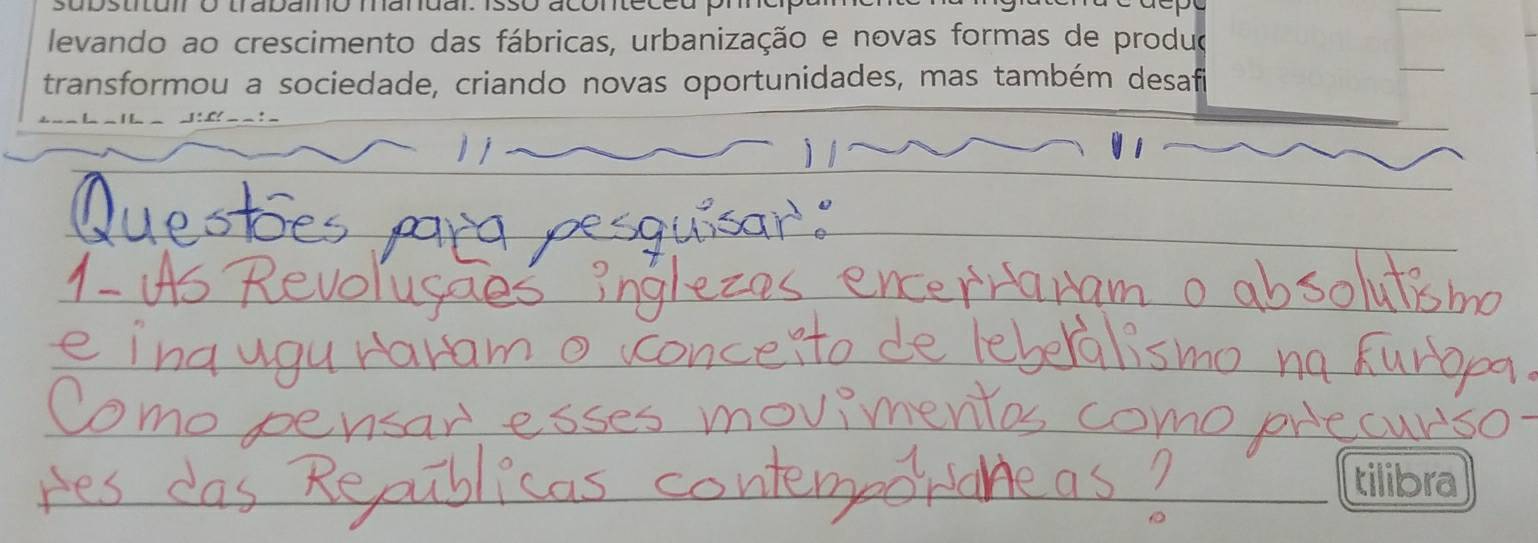 substituir o trabalho manual. Isso aconteceu principalmente na Inglaterra e
levando ao crescimento das fábricas, urbanização e novas formas de
transformou a sociedade, criando novas oportunidades, mas também
Questões para pesquisar:
1- As Revoluções inglezas encerraram o absolutismo
e inauguraram o conceito de leberalismo na Europa.
Como pensar esses movimentos como precurso-
res das Repúblicas contemporâneas?
tilibra